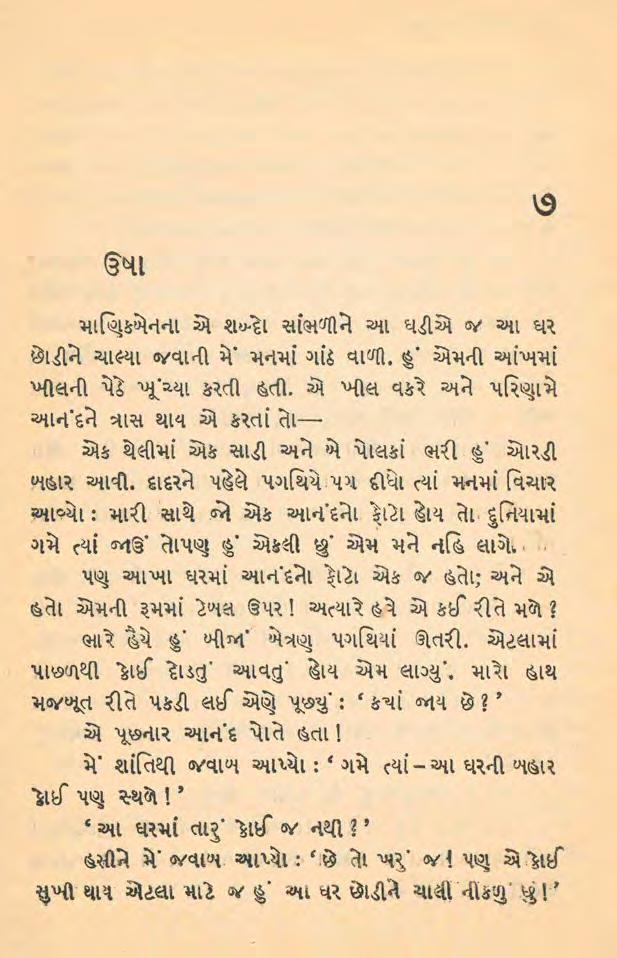 ૭
ઊષા
માણિકબેનના એ શબ્દો સાંભળીને આ ઘડીએ જ આ ઘર
છોડીને ચાલ્યા જવાની મેં મનમાં ગાંઠ વાળી. હું એમની આંખમાં
ખીલની પેઠે ખૂંચ્યા કરતી હતી. એ ખીલ વકરે અને પરિણામે
આનંદને ત્રાસ થાય એ કરતાં તો—
એક થેલીમાં એક સાડી અને બે પોલકાં ભરી હું ઓરડી
બહાર આવી. દાદરને પહેલે પગથિયે પગ દીધો ત્યાં મનમાં વિચાર
આવ્યો : મારી સાથે જો એક આનંદનો ફોટો હોય તો દુનિયામાં
ગમે ત્યાં જાઉં તોપણ હું એકલી છું એમ મને નહિ લાગે.
પણ આખા ઘરમાં આનંદનો ફોટો એક જ હતો; અને એ
હતો એમની રૂમમાં ટેબલ ઉપર! અત્યારે હવે એ કઈ રીતે મળે?
ભારે હૈયે હું બીજાં બેત્રણ પગથિયાં ઊતરી. એટલામાં
પાછળથી કોઈ દોડતું આવતું હોય એમ લાગ્યું. મારો હાથ
મજબૂત રીતે પકડી લઈ એણે પૂછ્યું : ‘કયાં જાય છે?’
એ પૂછનાર આનંદ પોતે હતા!
મેં શાંતિથી જવાબ આપ્યો : ‘ગમે ત્યાં – આ ઘરની બહાર
કોઈ પણ સ્થળે!’
‘આ ઘરમાં તારું કોઈ જ નથી?’
હસીને મેં જવાબ આપ્યો : ‘છે તો ખરું જ! પણ એ કોઈ
સુખી થાય એટલા માટે જ હું આ ઘર છોડીને ચાલી નીકળું છું!’